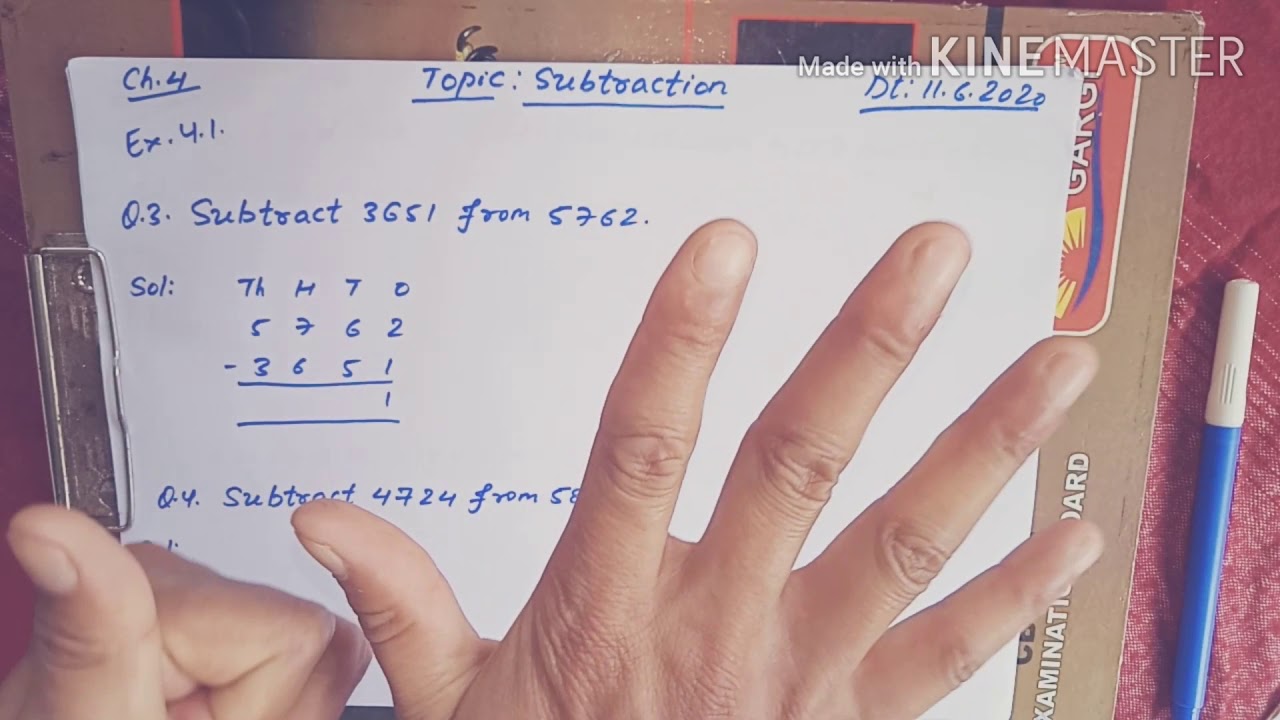 Made with KINEMASTER
Ch.4 Topic: Subtraction Dt: 11.6.2020
Ex.4.1.
Q.3. Subtract 3651 from 5762.
Sol: Th H T O
5 7 6 2
- 3 6 5 1
1
Q.4. Subtract 4724 from 58
GARG